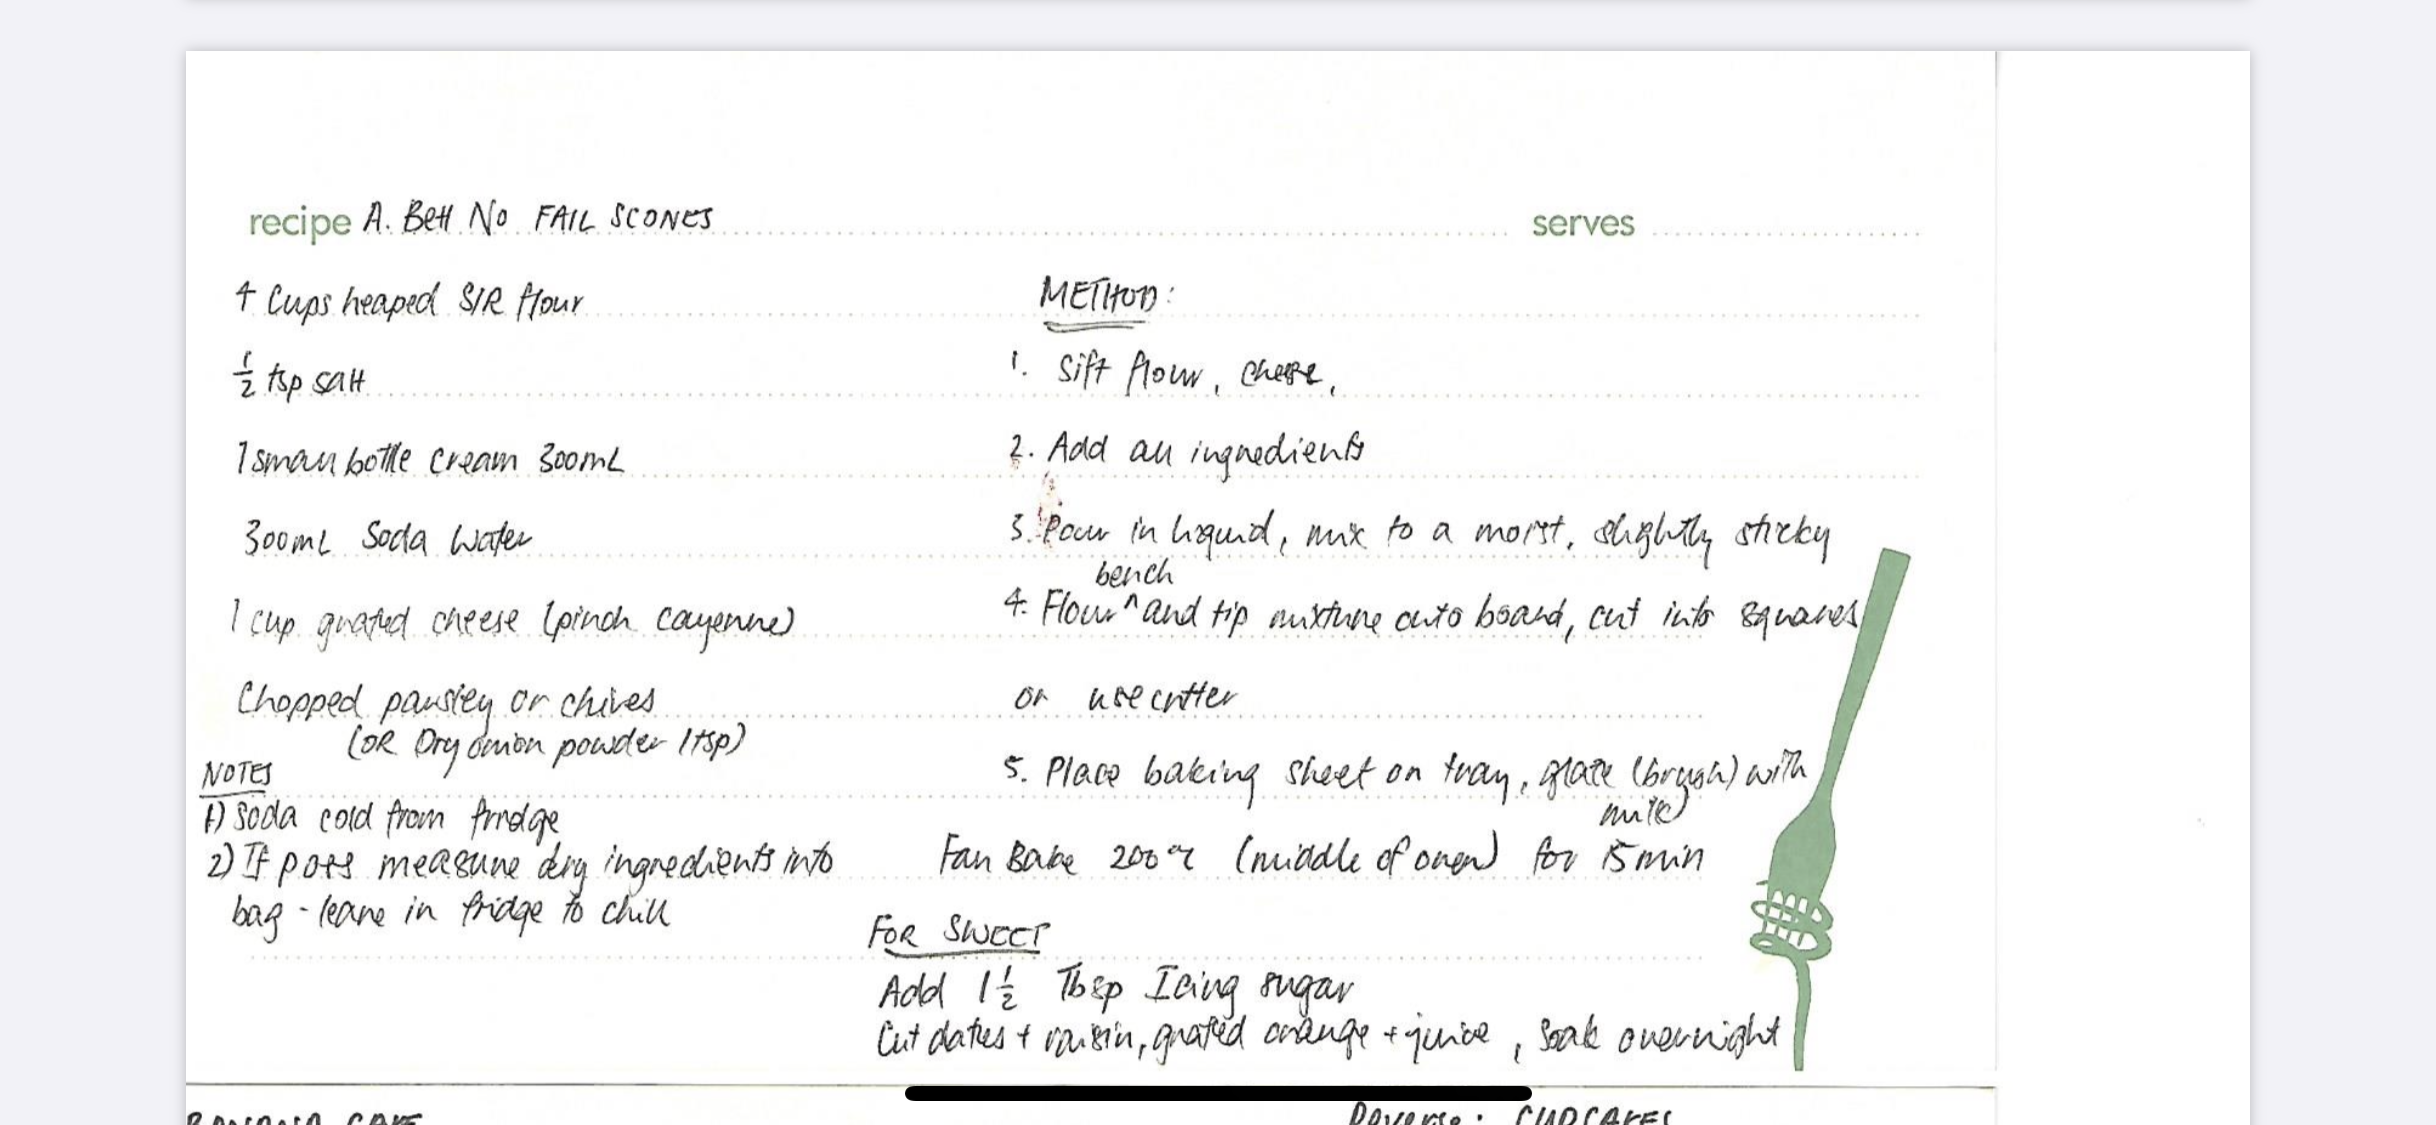 recipe A. Bell No FAIL SCONES serves
4 Cups heaped S/R flour
½ tsp salt
1 small bottle cream 300mL
300mL Soda Water
1 cup grated cheese (pinch cayenne)
Chopped parsley or chives
(OR Dry onion powder 1tsp)
NOTES
1) Soda cold from fridge
2) If poss measure dry ingredients into
bag - leave in fridge to chill
METHOD:
1. Sift flour, cheese,
2. Add all ingredients
3. Pour in liquid, mix to a moist, slightly sticky
bench
4. Flour ^ and tip mixture onto board, cut into squares
or use cutter
5. Place baking sheet on tray, glaze (brush) with
milk
Fan Bake 200°C (middle of oven) for 15 min
FOR SWEET
Add 1½ Tbsp Icing sugar
Cut dates + raisin, grated orange + juice, soak overnight
BANANA CAKE
Reverse: CUPCAKES